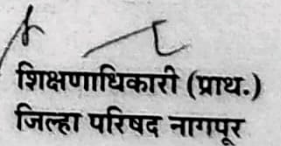 शिक्षणाधिकारी (प्राथ.)
जिल्हा परिषद नागपूर